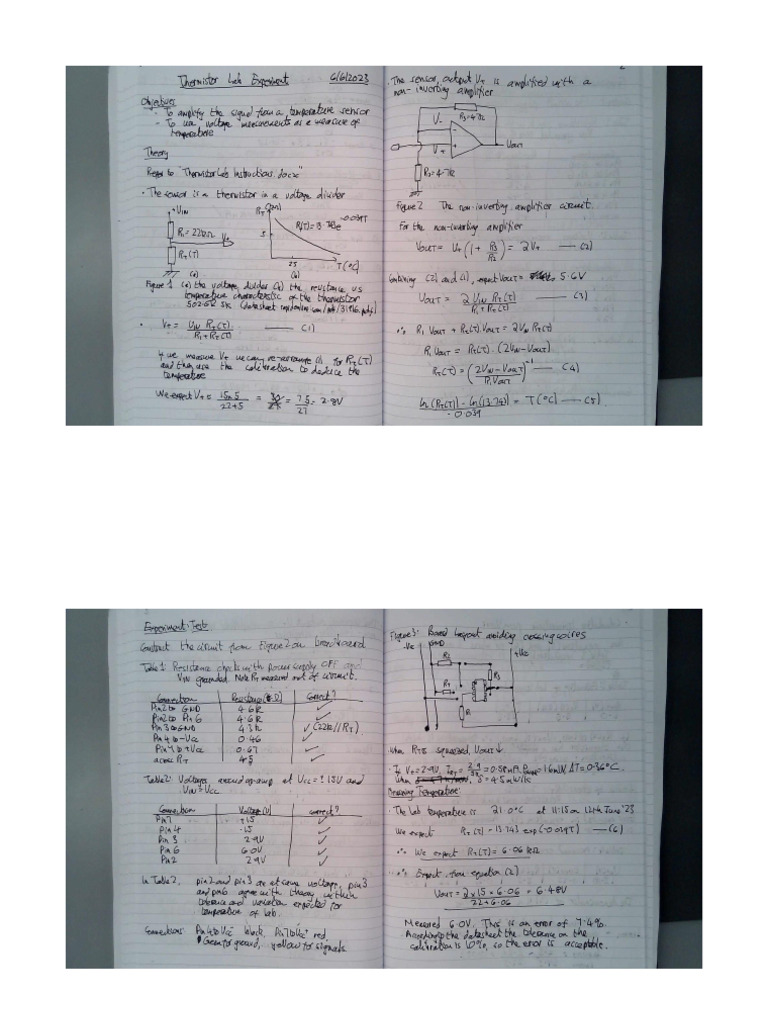 Thermistor Lab Experiment 6/6/2023
Objectives
- To amplify the signal from a temperature sensor
- To use voltage measurements as a measure of
temperature
Theory
Refer to "Thermistor Lab Instructions.docx"
• The sensor is a thermistor in a voltage divider
+VIN
R1=22kΩ
V+
RT(T)
RT (kΩ)
5
R(T)=13.743e^-0.039T
25
T(°C)
(a) (b)
Figure 1 (a) the voltage divider (b) the resistance vs
temperature characteristic of the thermistor
• V+ = VIN RT(T) / R1+RT(T) —— (1)
If we measure V+ we can re-arrange (1) for RT(T)
and then use the calibration to deduce the
temperature
We expect V+ = 15×5 / 22+5 = = 7.5 / 27 = 2.8V
2
• The sensor, output V+ is amplified with a
non-inverting amplifier
R3=4.7k
V-
V+
VOUT
R2=4.7k
Figure 2 The non-inverting amplifier circuit
For the non-inverting amplifier
VOUT = V+ (1 + R3/R2) = 2V+ —— (2)
Combining (2) and (1), expect VOUT = 5.6V
VOUT = 2 VIN RT(T) / R1+RT(T) —— (3)
∴ R1 VOUT + RT(T) VOUT = 2VIN RT(T)
R1 VOUT = RT(T) · (2VIN-VOUT)
RT(T) = (2VIN-VOUT / R1VOUT)^-1 —— (4)
ln(RT(T)) - ln(13.743) / -0.039 = T(°C) —— (5)
Experiment: Test
Construct the circuit from Figure 2 on breadboard
Table 1: Resistance checks with power supply OFF and
VIN grounded. Note RT measured out of circuit.
Connection Resistance (Ω) Correct?
Pin 2 to GND 4.6k ✓
Pin 2 to Pin 6 4.6k ✓
Pin 3 to GND 4.3k ✓ (22k//RT)
Pin 4 to -Vcc 0.46 ✓
Pin 7 to +Vcc 0.67 ✓
across RT 4.5 ✓
Table 2: Voltages around op-amp at Vcc=±15V and
VIN=Vcc
Connection Voltage (V) correct?
Pin 7 +15 ✓
Pin 4 -15 ✓
Pin 3 2.9V ✓
Pin 6 6.0V ✓
Pin 2 2.9V ✓
In Table 2, pin 2 and pin 3 are at same voltage, pin 3
and pin 6 agree with theory within
tolerance and variation expected for
temperature of lab.
Connections: Pin 4 to Vcc- black, Pin 7 to Vcc+ red,
Green for ground, yellow for signals
Figure 3: Board layout avoiding crossing wires
-Vcc GND +Vcc
R2
RT
R3
R1
When RT is squeezed, VOUT ↓
• If V+=2.9V,
Checking Temperature:
• The lab temperature is 21.0°C at 11:15 on 12th June '23
We expect RT(T) = 13.743 exp(-0.039T) —— (6)
∴ We expect RT(T) = 6.06 kΩ
∴ Expect from equation (2)
VOUT = 2×15×6.06 / 22+6.06 = 6.48V
Measured 6.0V. This is an error of 7.4%.
According to the datasheet the tolerance on the
calibration is 10%, so the error is acceptable.